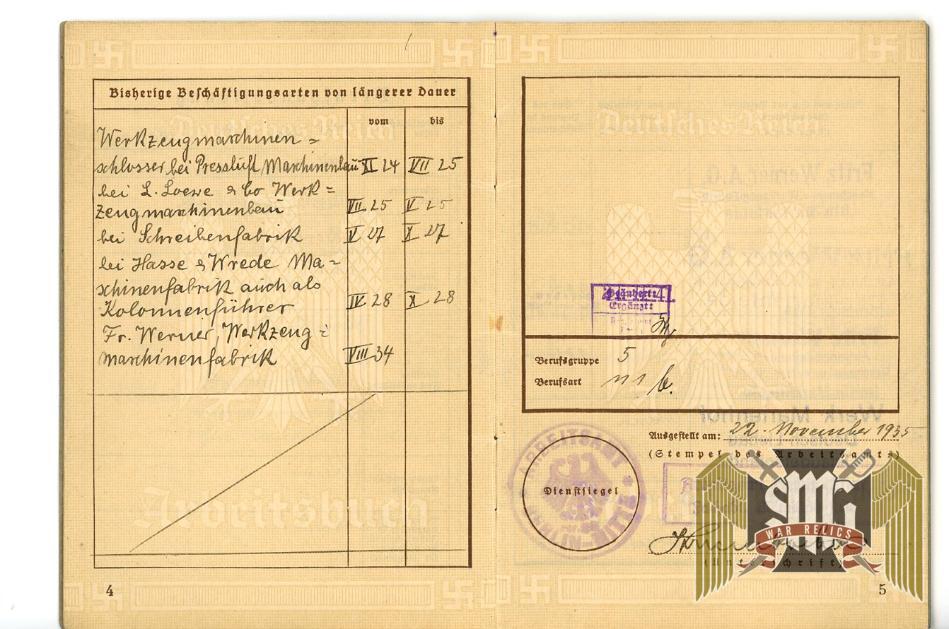 Bisherige Beschäftigungsarten von längerer Dauer
vom bis
Werkzeugmaschinen=
schlosser bei Pressluft Maschinenbau XI 24 VII 25
bei L. Loewe & Co Werk=
zeugmaschinenbau VII 25 V 25
bei Schreibenfabrik V 27 X 27
bei Hasse & Wrede Ma=
schinenfabrik auch als
Kolonnenführer IV 28 X 28
Fr. Werner, Werkzeug=
maschinenfabrik VIII 34
Arbeitsbuch
4
Deutsches Reich
Fritz Werner A.G.
Geändert:
Ergänzt:
Berufsgruppe 5
Berufsart
Ausgestellt am: 22. November 1935
(Stempel des Arbeitsamts)
ARBEITSAMT
Dienstsiegel
MITTE
SMG
WAR RELICS
5